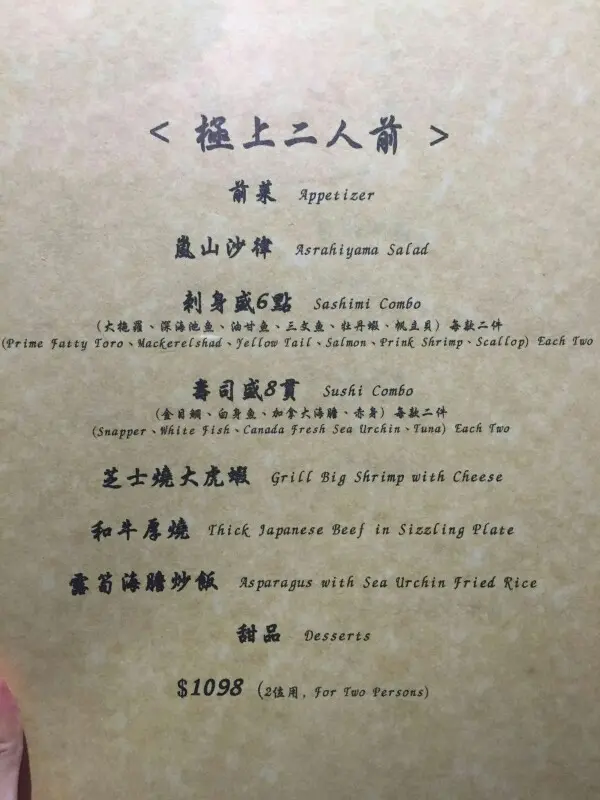 < 極上二人前 >
前菜 Appetizer
嵐山沙律 Asrahiyama Salad
刺身盛6點 Sashimi Combo
(大拖羅、深海池魚、油甘魚、三文魚、牡丹蝦、帆立貝) 每款二件
(Prime Fatty Toro、Mackerelshad、Yellow Tail、Salmon、Prink Shrimp、Scallop) Each Two
壽司盛8貫 Sushi Combo
(金目鯛、白身魚、加拿大海膽、赤身) 每款二件
(Snapper、White Fish、Canada Fresh Sea Urchin、Tuna) Each Two
芝士燒大虎蝦 Grill Big Shrimp with Cheese
和牛厚燒 Thick Japanese Beef in Sizzling Plate
露筍海膽炒飯 Asparagus with Sea Urchin Fried Rice
甜品 Desserts
$1098 (2位用, For Two Persons)